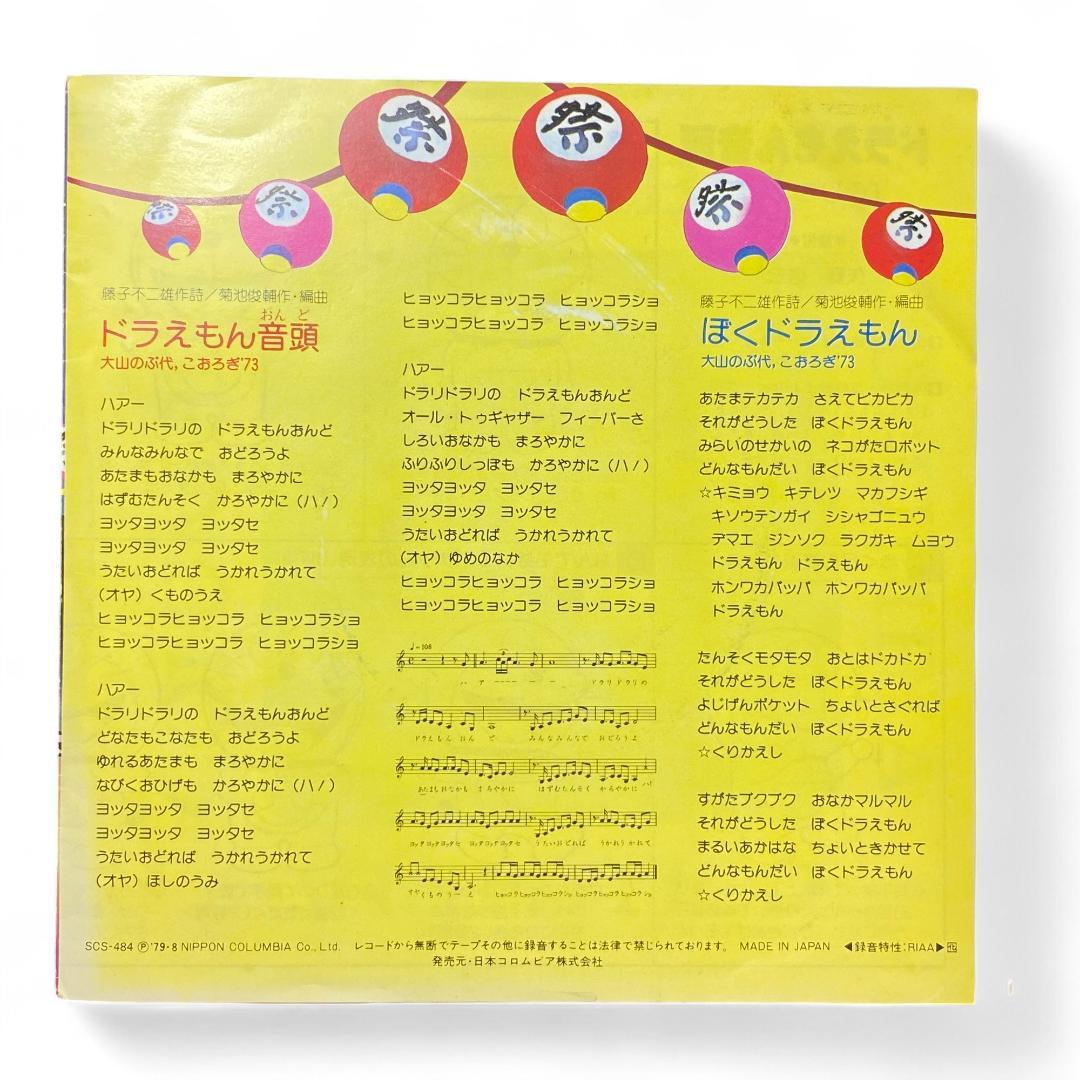 祭
祭
祭
祭
祭
祭
藤子不二雄作詩／菊池俊輔作・編曲
おん ど
ドラえもん音頭
大山のぶ代, こおろぎ'73
ハアー
ドラリドラリの　ドラえもんおんど
みんなみんなで　おどろうよ
あたまもおなかも　まろやかに
はずむたんそく　かろやかに（ハ！）
ヨッタヨッタ　ヨッタセ
ヨッタヨッタ　ヨッタセ
うたいおどれば　うかれうかれて
（オヤ）くものうえ
ヒョッコラヒョッコラ　ヒョッコラショ
ヒョッコラヒョッコラ　ヒョッコラショ
ハアー
ドラリドラリの　ドラえもんおんど
どなたもこなたも　おどろうよ
ゆれるあたまも　まろやかに
なびくおひげも　かろやかに（ハ！）
ヨッタヨッタ　ヨッタセ
ヨッタヨッタ　ヨッタセ
うたいおどれば　うかれうかれて
（オヤ）ほしのうみ
ヒョッコラヒョッコラ　ヒョッコラショ
ヒョッコラヒョッコラ　ヒョッコラショ
ハアー
ドラリドラリの　ドラえもんおんど
オール・トゥギャザー　フィーバーさ
しろいおなかも　まろやかに
ふりふりしっぽも　かろやかに（ハ！）
ヨッタヨッタ　ヨッタセ
ヨッタヨッタ　ヨッタセ
うたいおどれば　うかれうかれて
（オヤ）ゆめのなか
ヒョッコラヒョッコラ　ヒョッコラショ
ヒョッコラヒョッコラ　ヒョッコラショ
♩=108
ハ ア ー ー ー ー ー ー ドラリドラリの
ドラえもん おん ど みんなみんなで おどろうよ
あたまもおなかも まろやかに はずむたんそく かろやかに ハ！
ヨッタヨッタヨッタセ ヨッタヨッタヨッタセ うたいおどれば うかれうかれて
オヤくものうーえ ヒョッコラヒョッコラヒョッコラショ ヒョッコラヒョッコラヒョッコラショ
藤子不二雄作詩／菊池俊輔作・編曲
ぼくドラえもん
大山のぶ代, こおろぎ'73
あたまテカテカ　さえてピカピカ
それがどうした　ぼくドラえもん
みらいのせかいの　ネコがたロボット
どんなもんだい　ぼくドラえもん
☆キミョウ　キテレツ　マカフシギ
キソウテンガイ　シシャゴニュウ
デマエ　ジンソク　ラクガキ　ムヨウ
ドラえもん　ドラえもん
ホンワカパッパ　ホンワカパッパ
ドラえもん
たんそくモタモタ　おとはドカドカ
それがどうした　ぼくドラえもん
よじげんポケット　ちょいとさぐれば
どんなもんだい　ぼくドラえもん
☆くりかえし
すがたブクブク　おなかマルマル
それがどうした　ぼくドラえもん
まるいあかはな　ちょいときかせて
どんなもんだい　ぼくドラえもん
☆くりかえし
SCS-484 Ⓟ'79・8 NIPPON COLUMBIA Co., Ltd.　レコードから無断でテープその他に録音することは法律で禁じられております。 MADE IN JAPAN ◀録音特性：RIAA▶
発売元・日本コロムビア株式会社